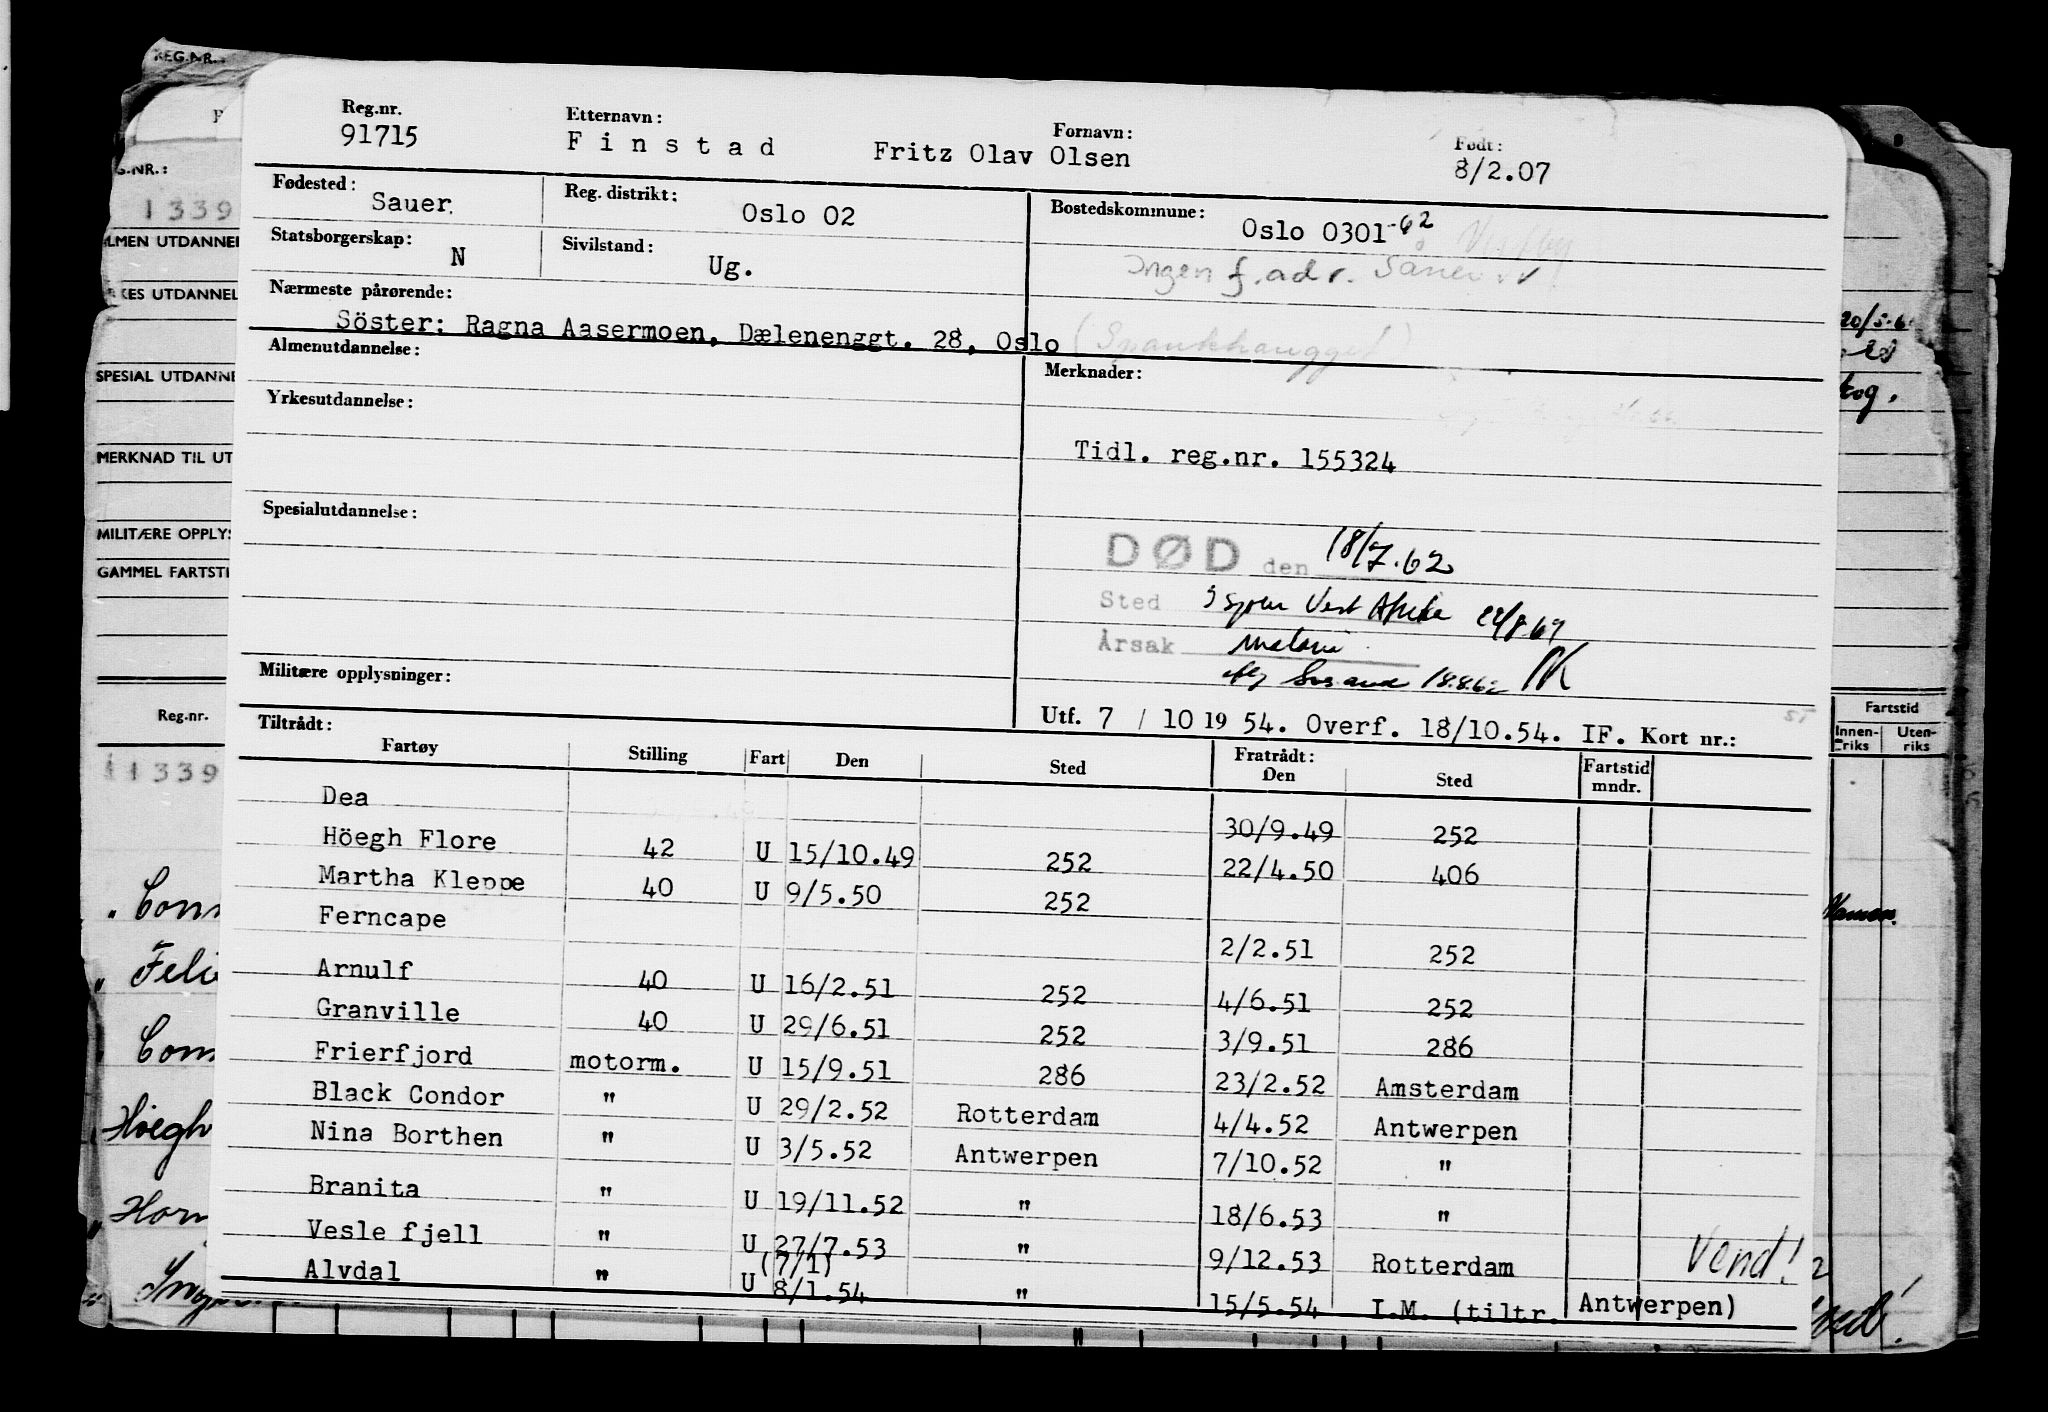 REG.NR.:
Reg.nr. Etternavn: Fornavn: Født:
91715 Finstad Fritz Olav Olsen 8/2.07
Fødested: Sauer. Reg. distrikt: Oslo 02 Bostedskommune: Oslo 0301-62
Statsborgerskap: N Sivilstand: Ug.
Ingen f.adr.
Nærmeste pårørende:
Söster: Ragna Aasermoen, Dælenenggt. 28, Oslo
Almenutdannelse: Merknader:
Yrkesutdannelse:
Tidl. reg.nr. 155324
Spesialutdannelse:
DØD den 18/7.62
Sted Vest Afrika
Årsak malaria
18.8.62
Militære opplysninger:
Utf. 7 / 10 19 54. Overf. 18/10.54. IF. Kort nr.:
Tiltrådt: Fratrådt:
Fartøy Stilling Fart Den Sted Den Sted Fartstid mndr.
Dea 30/9.49 252
Höegh Flore 42 U 15/10.49 252 22/4.50 406
Martha Kleppe 40 U 9/5.50 252
Ferncape 2/2.51 252
Arnulf 40 U 16/2.51 252 4/6.51 252
Granville 40 U 29/6.51 252 3/9.51 286
Frierfjord motorm. U 15/9.51 286 23/2.52 Amsterdam
Black Condor " U 29/2.52 Rotterdam 4/4.52 Antwerpen
Nina Borthen " U 3/5.52 Antwerpen 7/10.52 "
Branita " U 19/11.52 " 18/6.53 "
Vesle fjell " U 27/7.53 " 9/12.53 Rotterdam
(7/1)
Alvdal " U 8/1.54 " 15/5.54 I.M. (tiltr. Antwerpen)
Vend!
G.NR.:
1339
LMEN UTDANNEL
KES UTDANNEL
SPESIAL UTDANNE
MERKNAD TIL UT
MILITÆRE OPPLYS
GAMMEL FARTSTI
Reg.nr.
11339
Høegh
Fartstid
Innenriks Utenriks